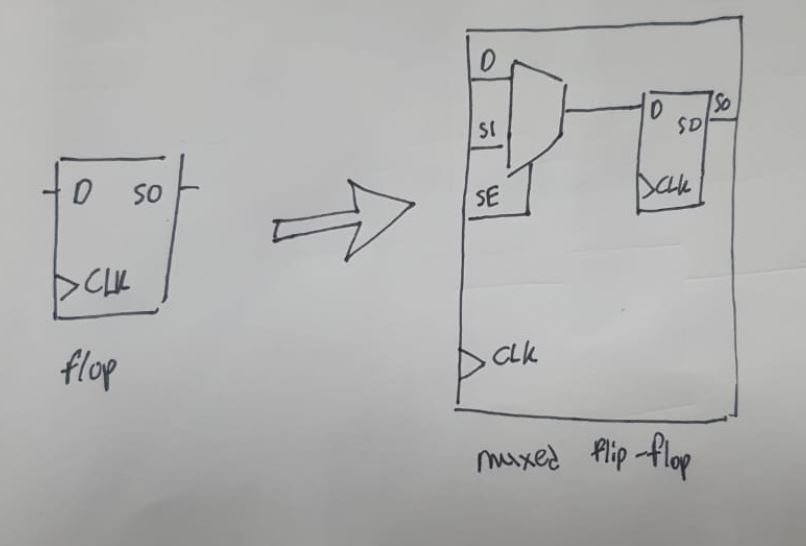 D SO
CLK
flop
D
SI
SE
CLK
D
SD
CLK
SO
muxed flip-flop